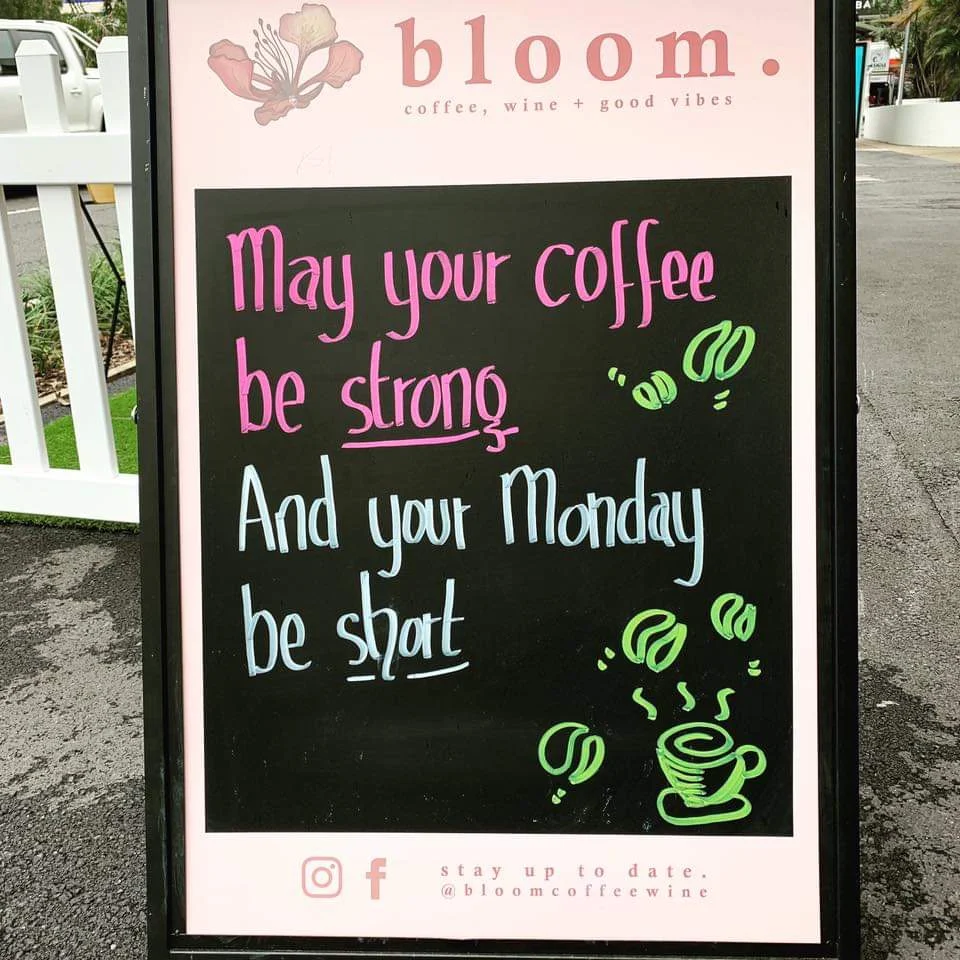 bloom.
coffee, wine + good vibes
May your coffee
be strong
And your Monday
be short
stay up to date.
@bloomcoffeewine